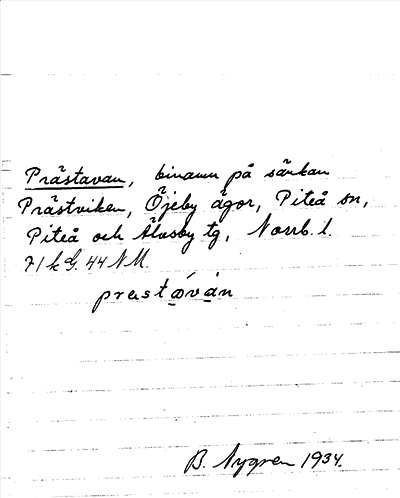 Prästavan, binamn på sänkan
Prästviken, Öjeby ägor, Piteå sn,
Piteå och Älvsby tg, Norrb. l.
71 k G. 44 NM.
præstaván
B. Nygren 1934.